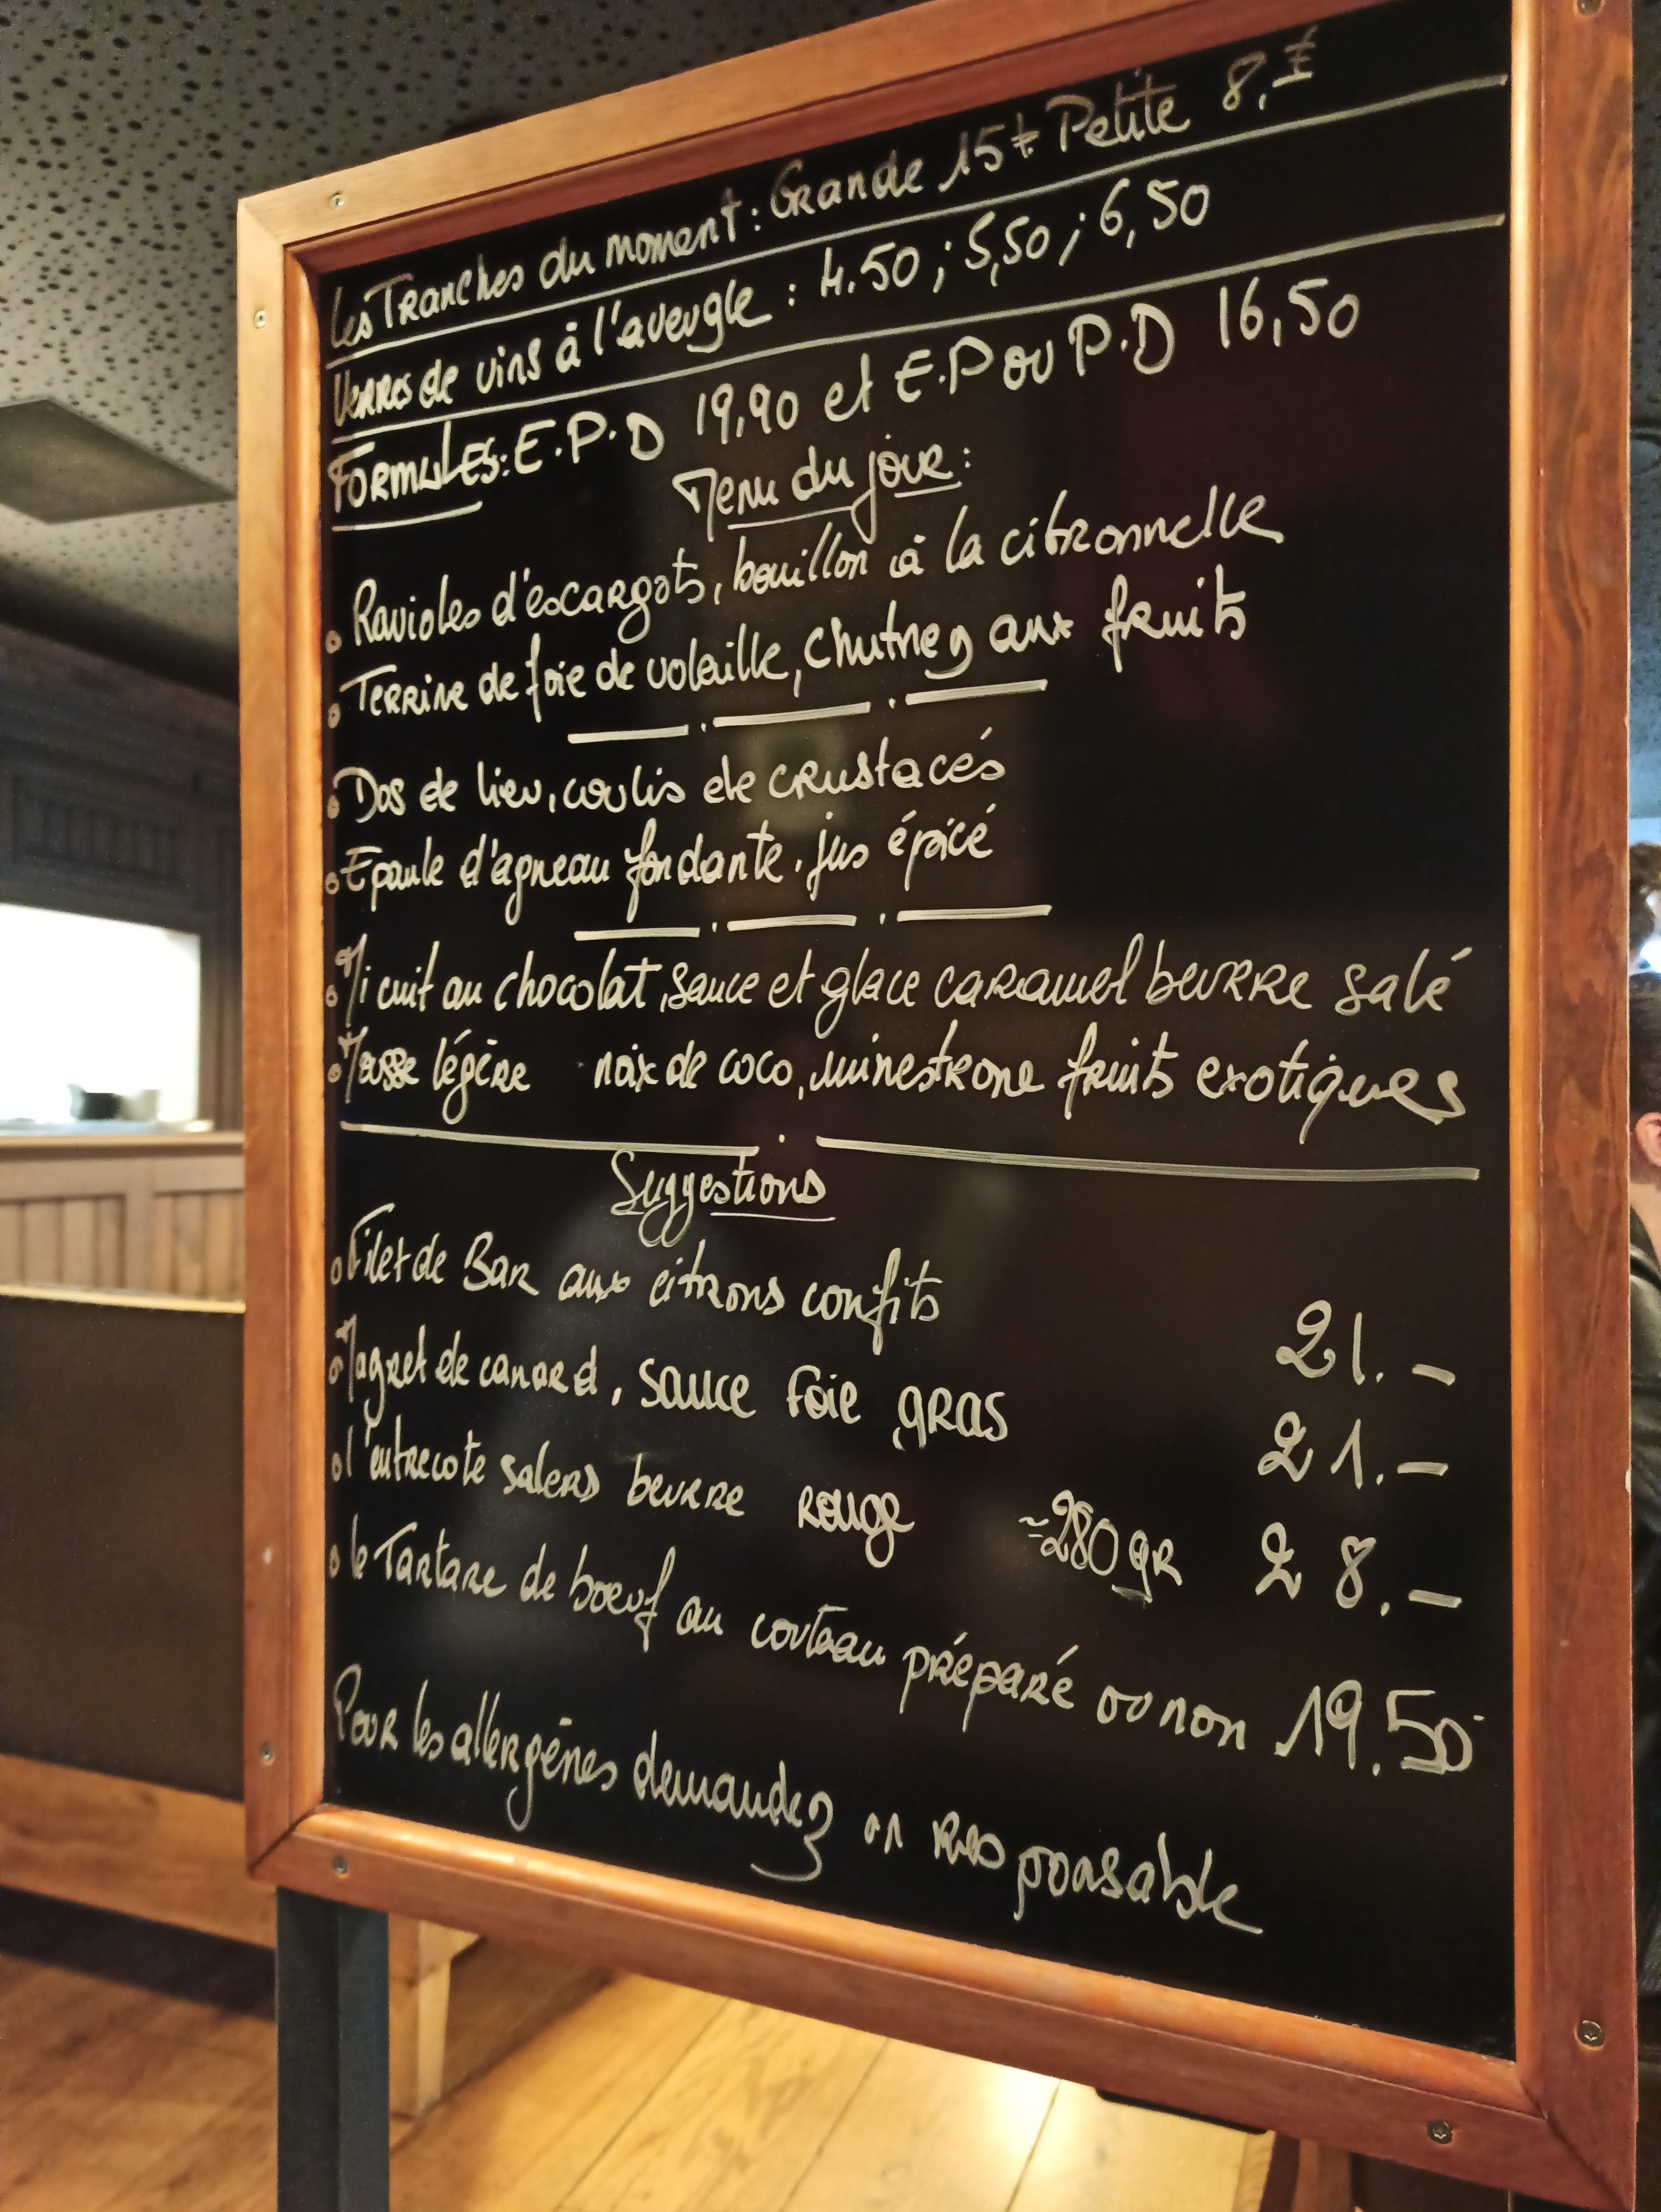 Les Tranches du moment : Grande 15€ Petite 8,€
Verres de vins à l'aveugle : 4.50 ; 5,50 ; 6,50
FORMULES: E.P.D 19,90 et E.P ou P.D 16,50
Menu du jour :
Ravioles d'escargots, bouillon à la citronnelle
Terrine de foie de volaille, chutney aux fruits
Dos de lieu, coulis de crustacés
Epaule d'agneau fondante, jus épicé
Mi cuit au chocolat, sauce et glace caramel beurre salé
Mousse légère noix de coco, minestrone fruits exotiques
Suggestions
Filet de Bar aux citrons confits 21.-
Magret de canard, sauce foie gras 21.-
l'entrecote salers beurre rouge ≃280gr 28.-
le Tartare de boeuf au couteau préparé ou non 19.50
Pour les allergènes demandez responsable